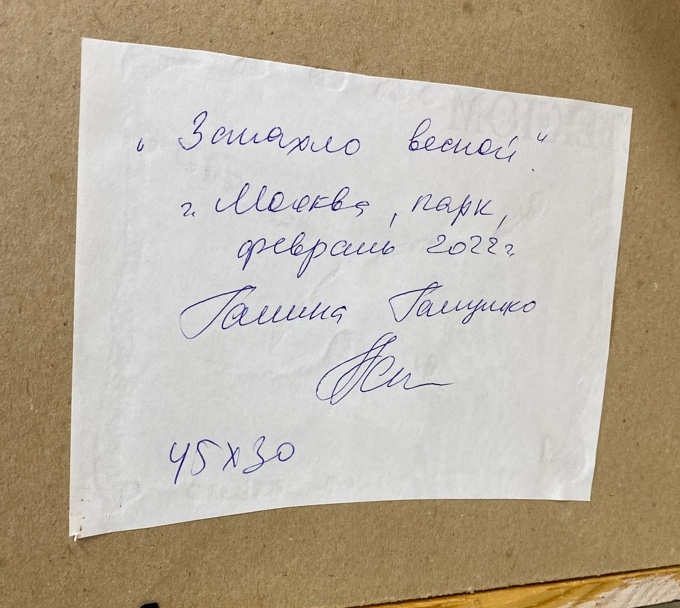 „Запахло весной"
г. Москва, парк,
февраль 2022 г.
Галина
45 x 30